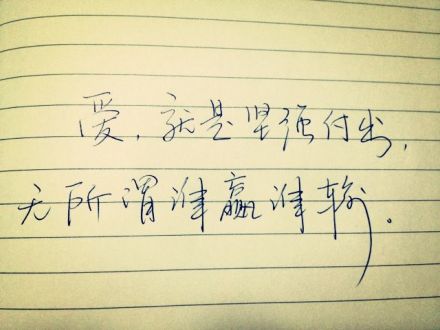 爱，就是坚强付出，
无所谓谁赢谁输。